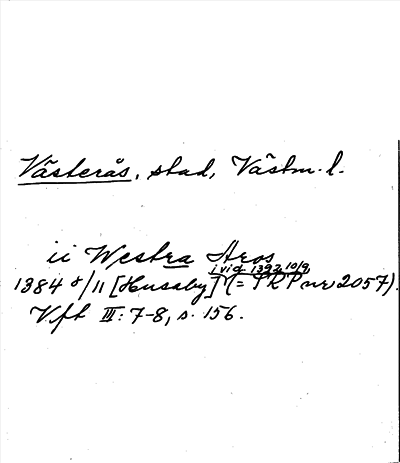 Västerås, stad, Västm. l.
ii Westra Aros
i vid. 1392 10/9
1384 8/11 [Husaby] (= SRP nr 2057).
Vft III: 7-8, s. 156.